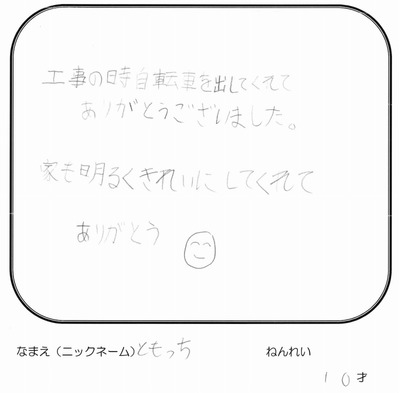 工事の時自転車を出してくれて
ありがとうございました。
家も明るくきれいにしてくれて
ありがとう
なまえ（ニックネーム）ともっち ねんれい
10才